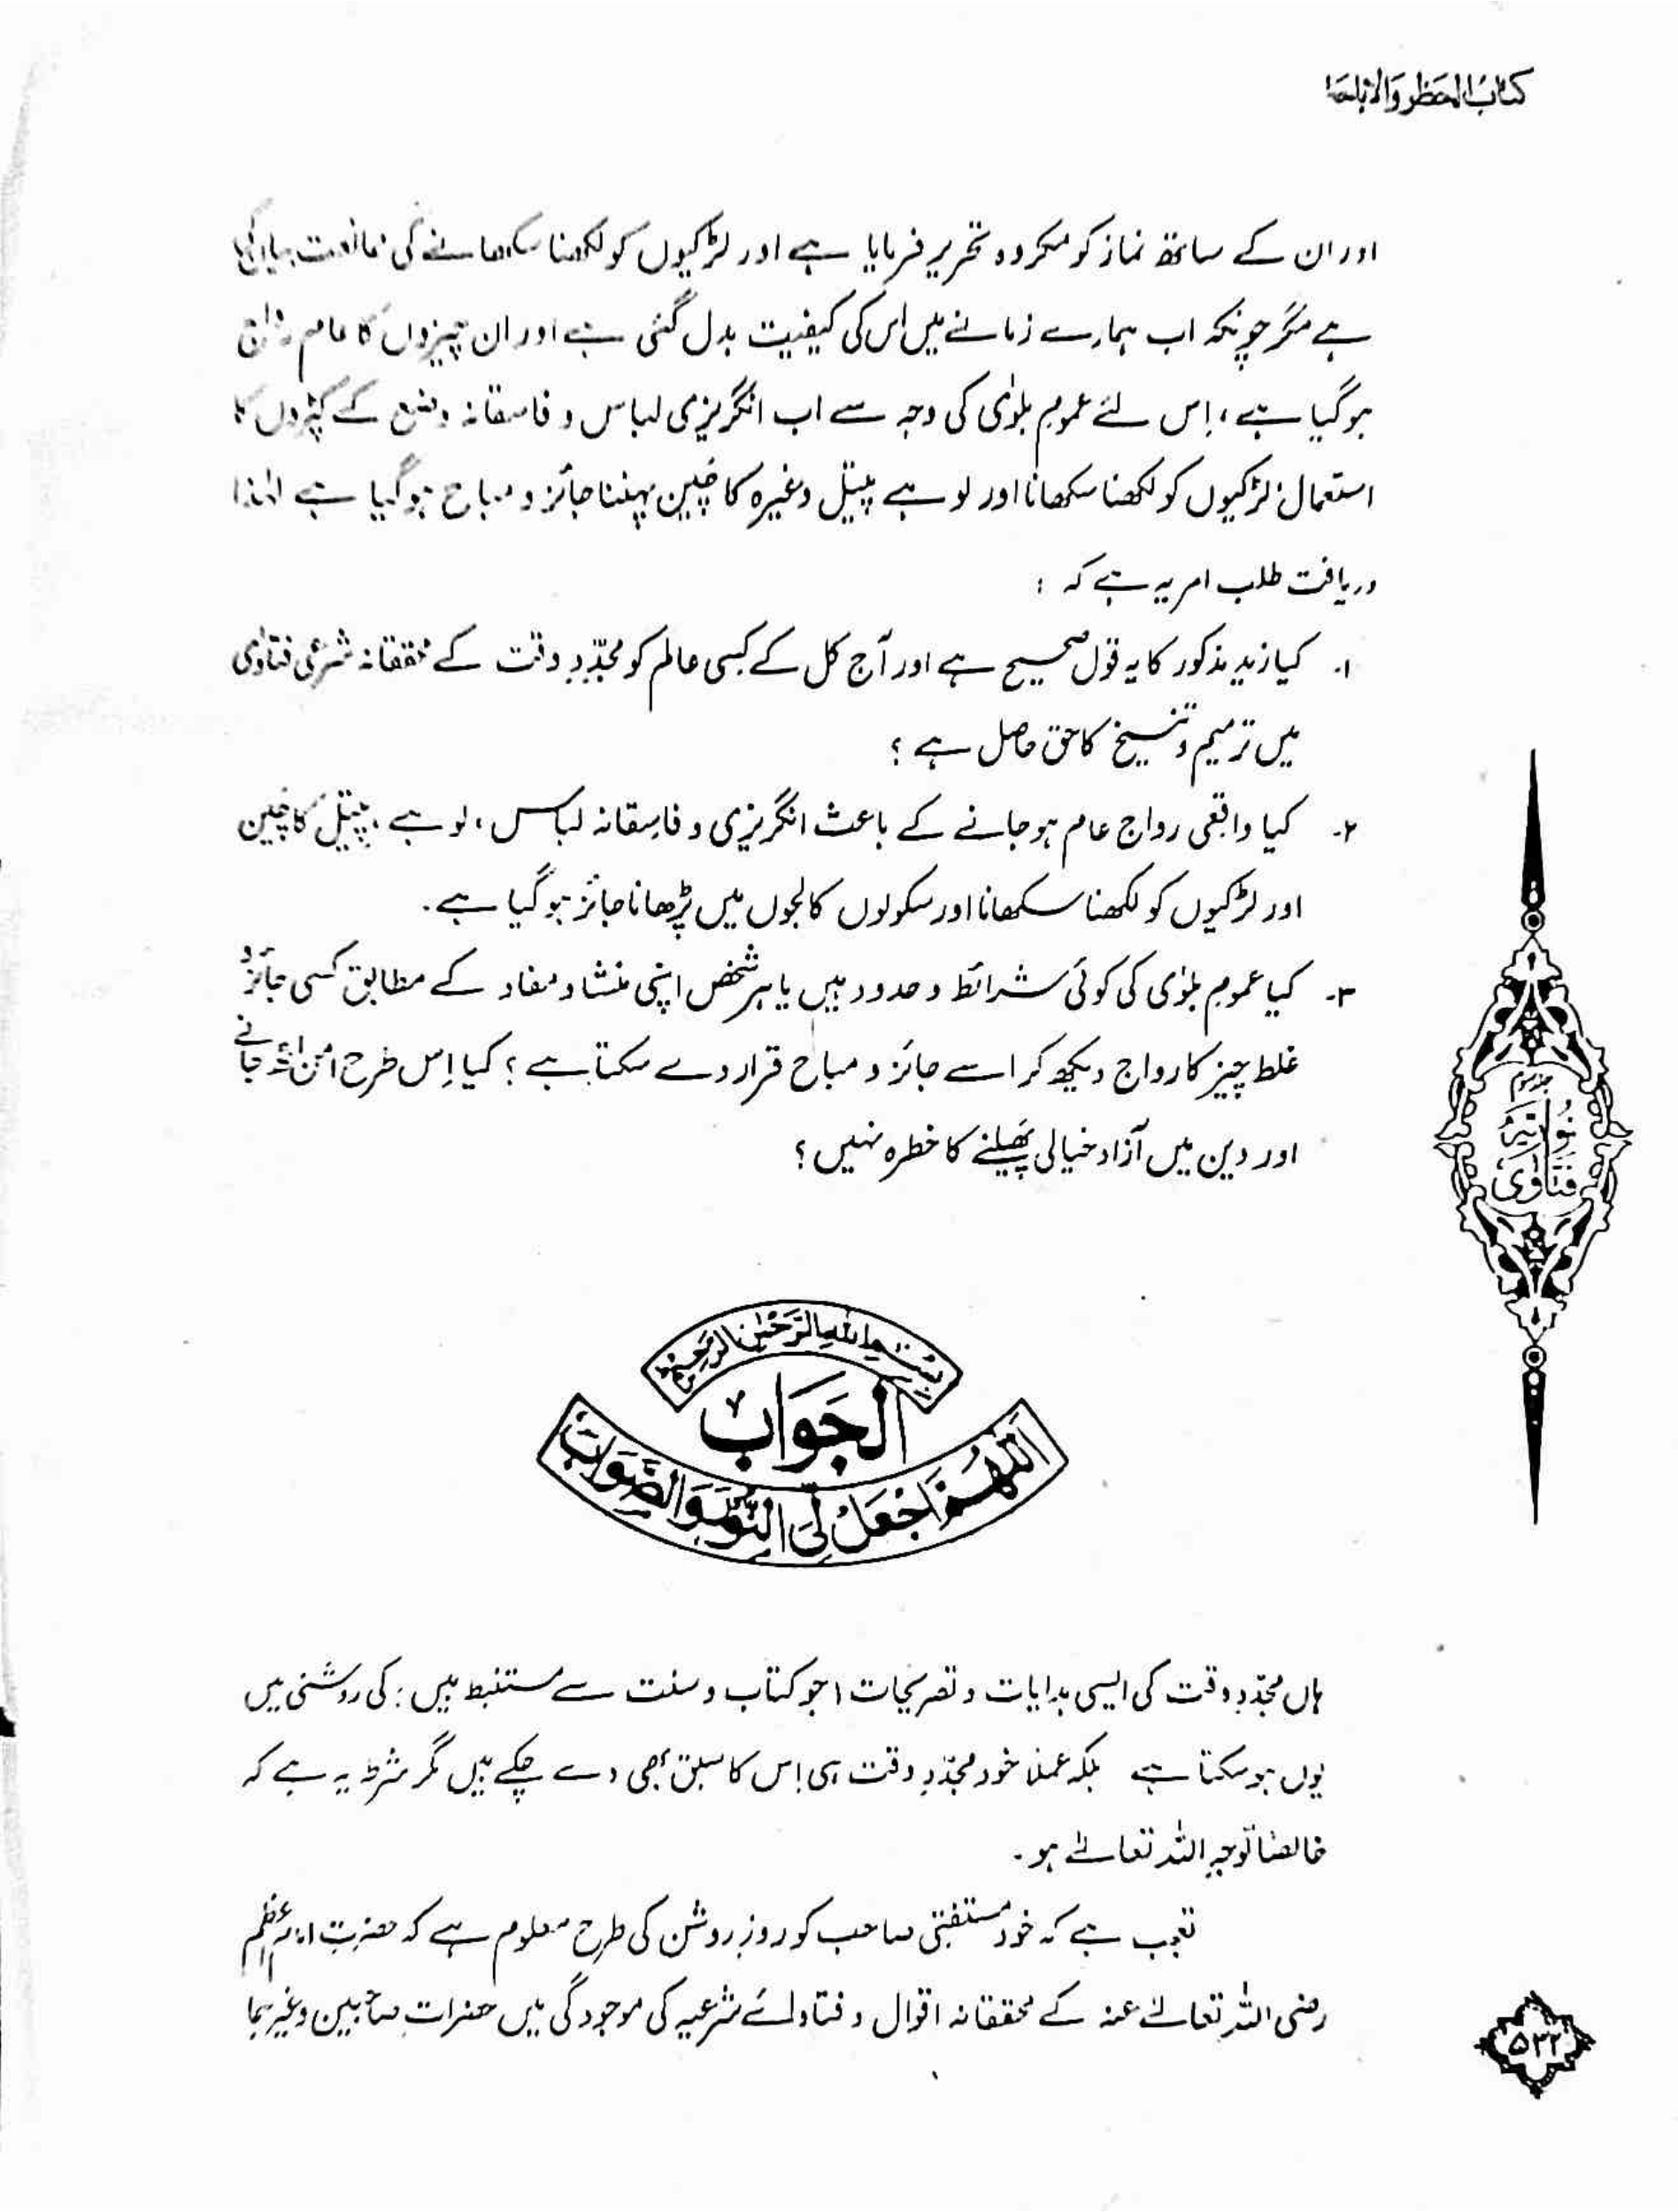 کتاب الحظر والاباحۃ
اور ان کے ساتھ نماز کو مکروہ تحریر فرمایا ہے اور لڑکیوں کو لکھنا سکھانے کی ممانعت بیان کی
ہے مگر چونکہ اب ہمارے زمانے میں اس کی کیفیت بدل گئی ہے اور ان چیزوں کا عام رواج
ہوگیا ہے، اِس لئے عمومِ بلوٰی کی وجہ سے اب انگریزی لباس و فاسقانہ وضع کے کپڑوں کا
استعمال، لڑکیوں کو لکھنا سکھانا اور لوہے پیتل وغیرہ کا چَین پہننا جائز و مباح ہوگیا ہے لہٰذا
دریافت طلب امر یہ ہے کہ :
۱۔ کیا زید مذکور کا یہ قول صحیح ہے اور آج کل کے کسی عالم کو مجدّدِ وقت کے محققانہ شرعی فتاوٰی
میں ترمیم و تنسیخ کا حق حاصل ہے ؟
۲۔ کیا واقعی رواج عام ہوجانے کے باعث انگریزی و فاسِقانہ لباس، لوہے، پیتل کا چَین
اور لڑکیوں کو لکھنا سکھانا اور سکولوں کالجوں میں پڑھانا جائز ہوگیا ہے۔
۳۔ کیا عمومِ بلوٰی کی کوئی شرائط و حدود ہیں یا ہر شخص اپنی منشاء و مفاد کے مطابق کسی جائز و
غلط چیز کا رواج دیکھ کر اسے جائز و مباح قرار دے سکتا ہے ؟ کیا اِس طرح امن اٹھ جانے
اور دین میں آزاد خیالی پَھیلنے کا خطرہ نہیں ؟
جلد سوم
نوریہ
فتاوٰی
بِسْمِ اللہِ الرَّحْمٰنِ الرَّحِیْمِ
الجَوَاب
اَللّٰھُمَّ اجْعَلْ لِیَ النُّوْرَ وَالصَّوَابَ
ہاں مجدّدِ وقت کی ایسی ہدایات و تصریحات (جو کتاب و سنت سے مستنبط ہیں) کی روشنی میں
یوں ہوسکتا ہے بلکہ عملاً خود مجدّدِ وقت ہی اِس کا سبق بھی دے چکے ہیں مگر شرط یہ ہے کہ
خالصًا لوجہِ اللہ تعالےٰ ہو۔
تعجب ہے کہ خود مستفتی صاحب کو روزِ روشن کی طرح معلوم ہے کہ حضرتِ امامِ اعظم
رضی اللہ تعالےٰ عنہ کے محققانہ اقوال و فتاوائے شرعیہ کی موجودگی میں حضراتِ صاحبین وغیرہما
۵۳۲